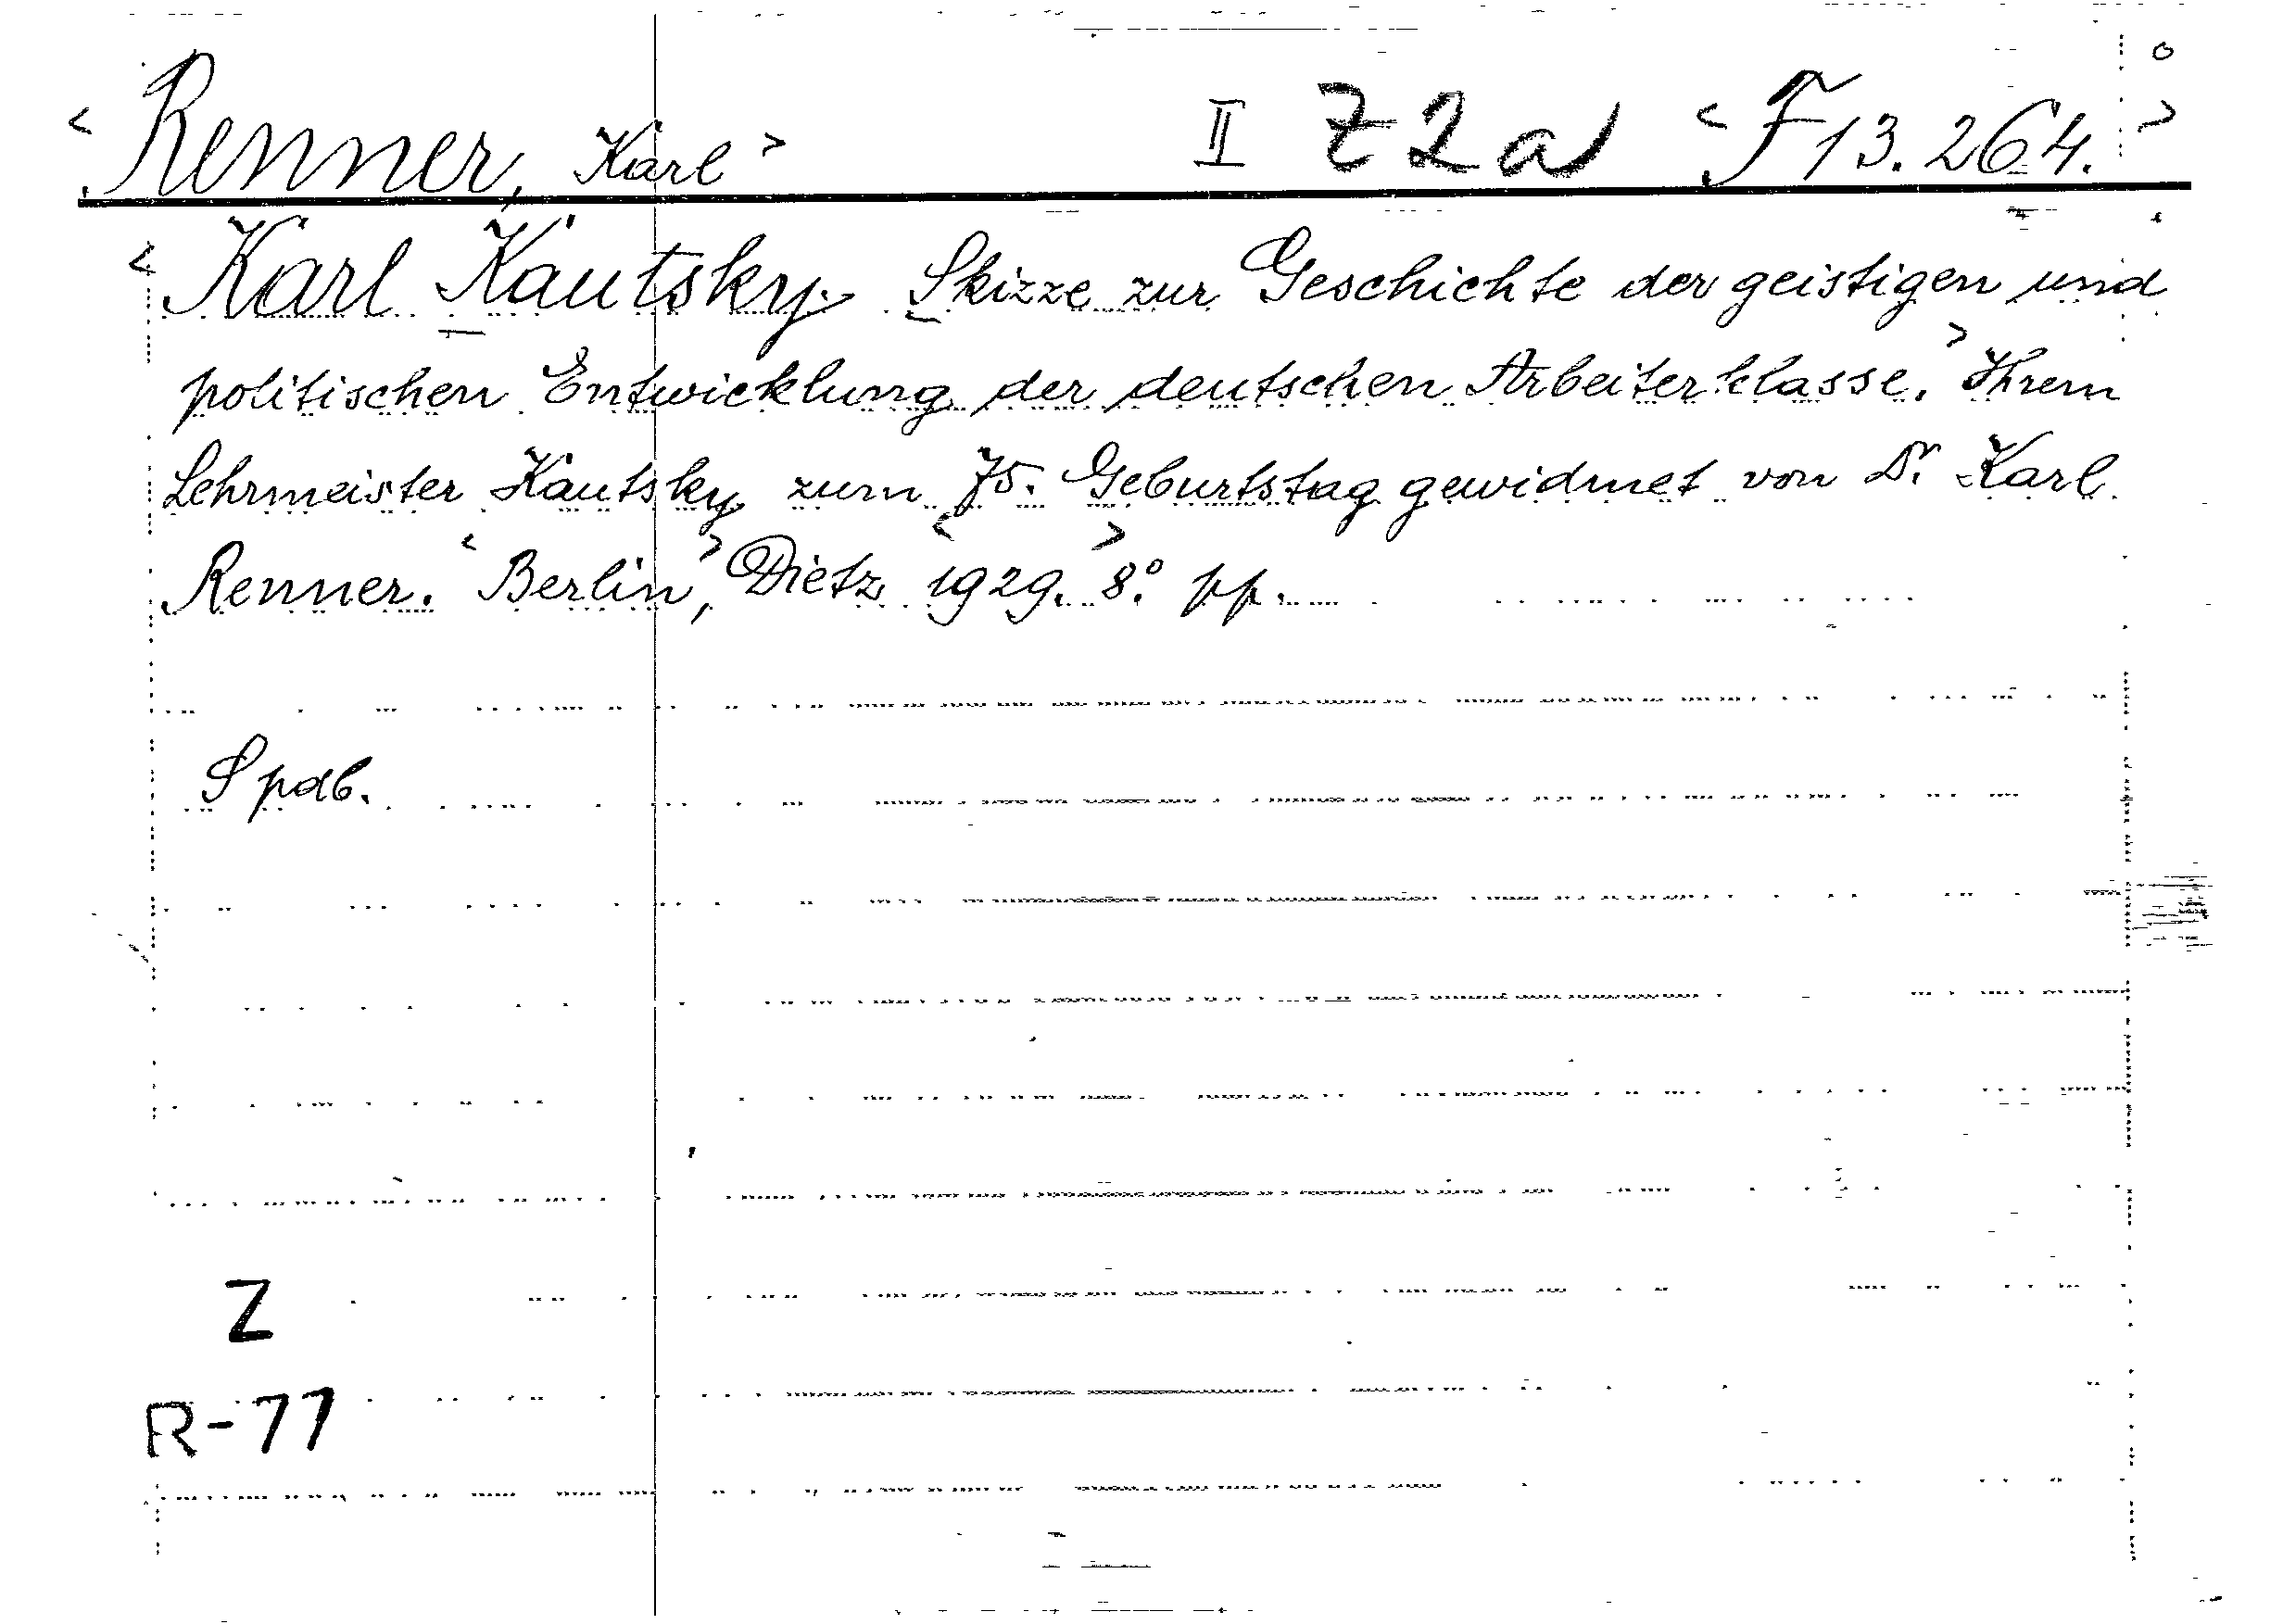 < Renner, Karl > II Z2a < F 13.264. >
< Karl Kautsky. Skizze zur Geschichte der geistigen und
politischen Entwicklung der deutschen Arbeiterklasse. > Ihrem
Lehrmeister Kautsky zum 75. Geburtstag gewidmet von Dr. Karl
Renner. < Berlin, > Dietz < 1929. > 8°. pp.
Spdb.
Z
R-77